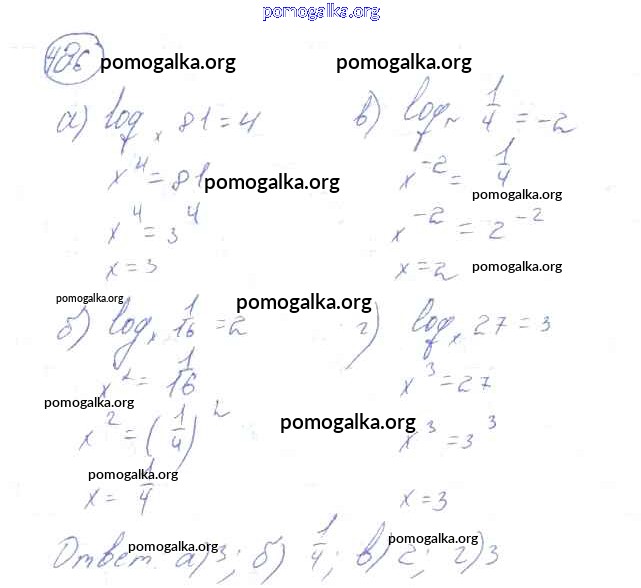 pomogalka.org
486 pomogalka.org pomogalka.org
а) log_x 81 = 4
x^4 = 81 pomogalka.org
x^4 = 3^4
x = 3
pomogalka.org
б) log_x 1/16 = 2 pomogalka.org
x^2 = 1/16
pomogalka.org
x^2 = (1/4)^2
pomogalka.org
x = 1/4
в) log_x 1/4 = -2
x^-2 = 1/4
pomogalka.org
x^-2 = 2^-2
x = 2 pomogalka.org
г) log_x 27 = 3
x^3 = 27
pomogalka.org
x^3 = 3^3
x = 3
Ответ. а) 3; б) 1/4; в) 2; г) 3
pomogalka.org pomogalka.org